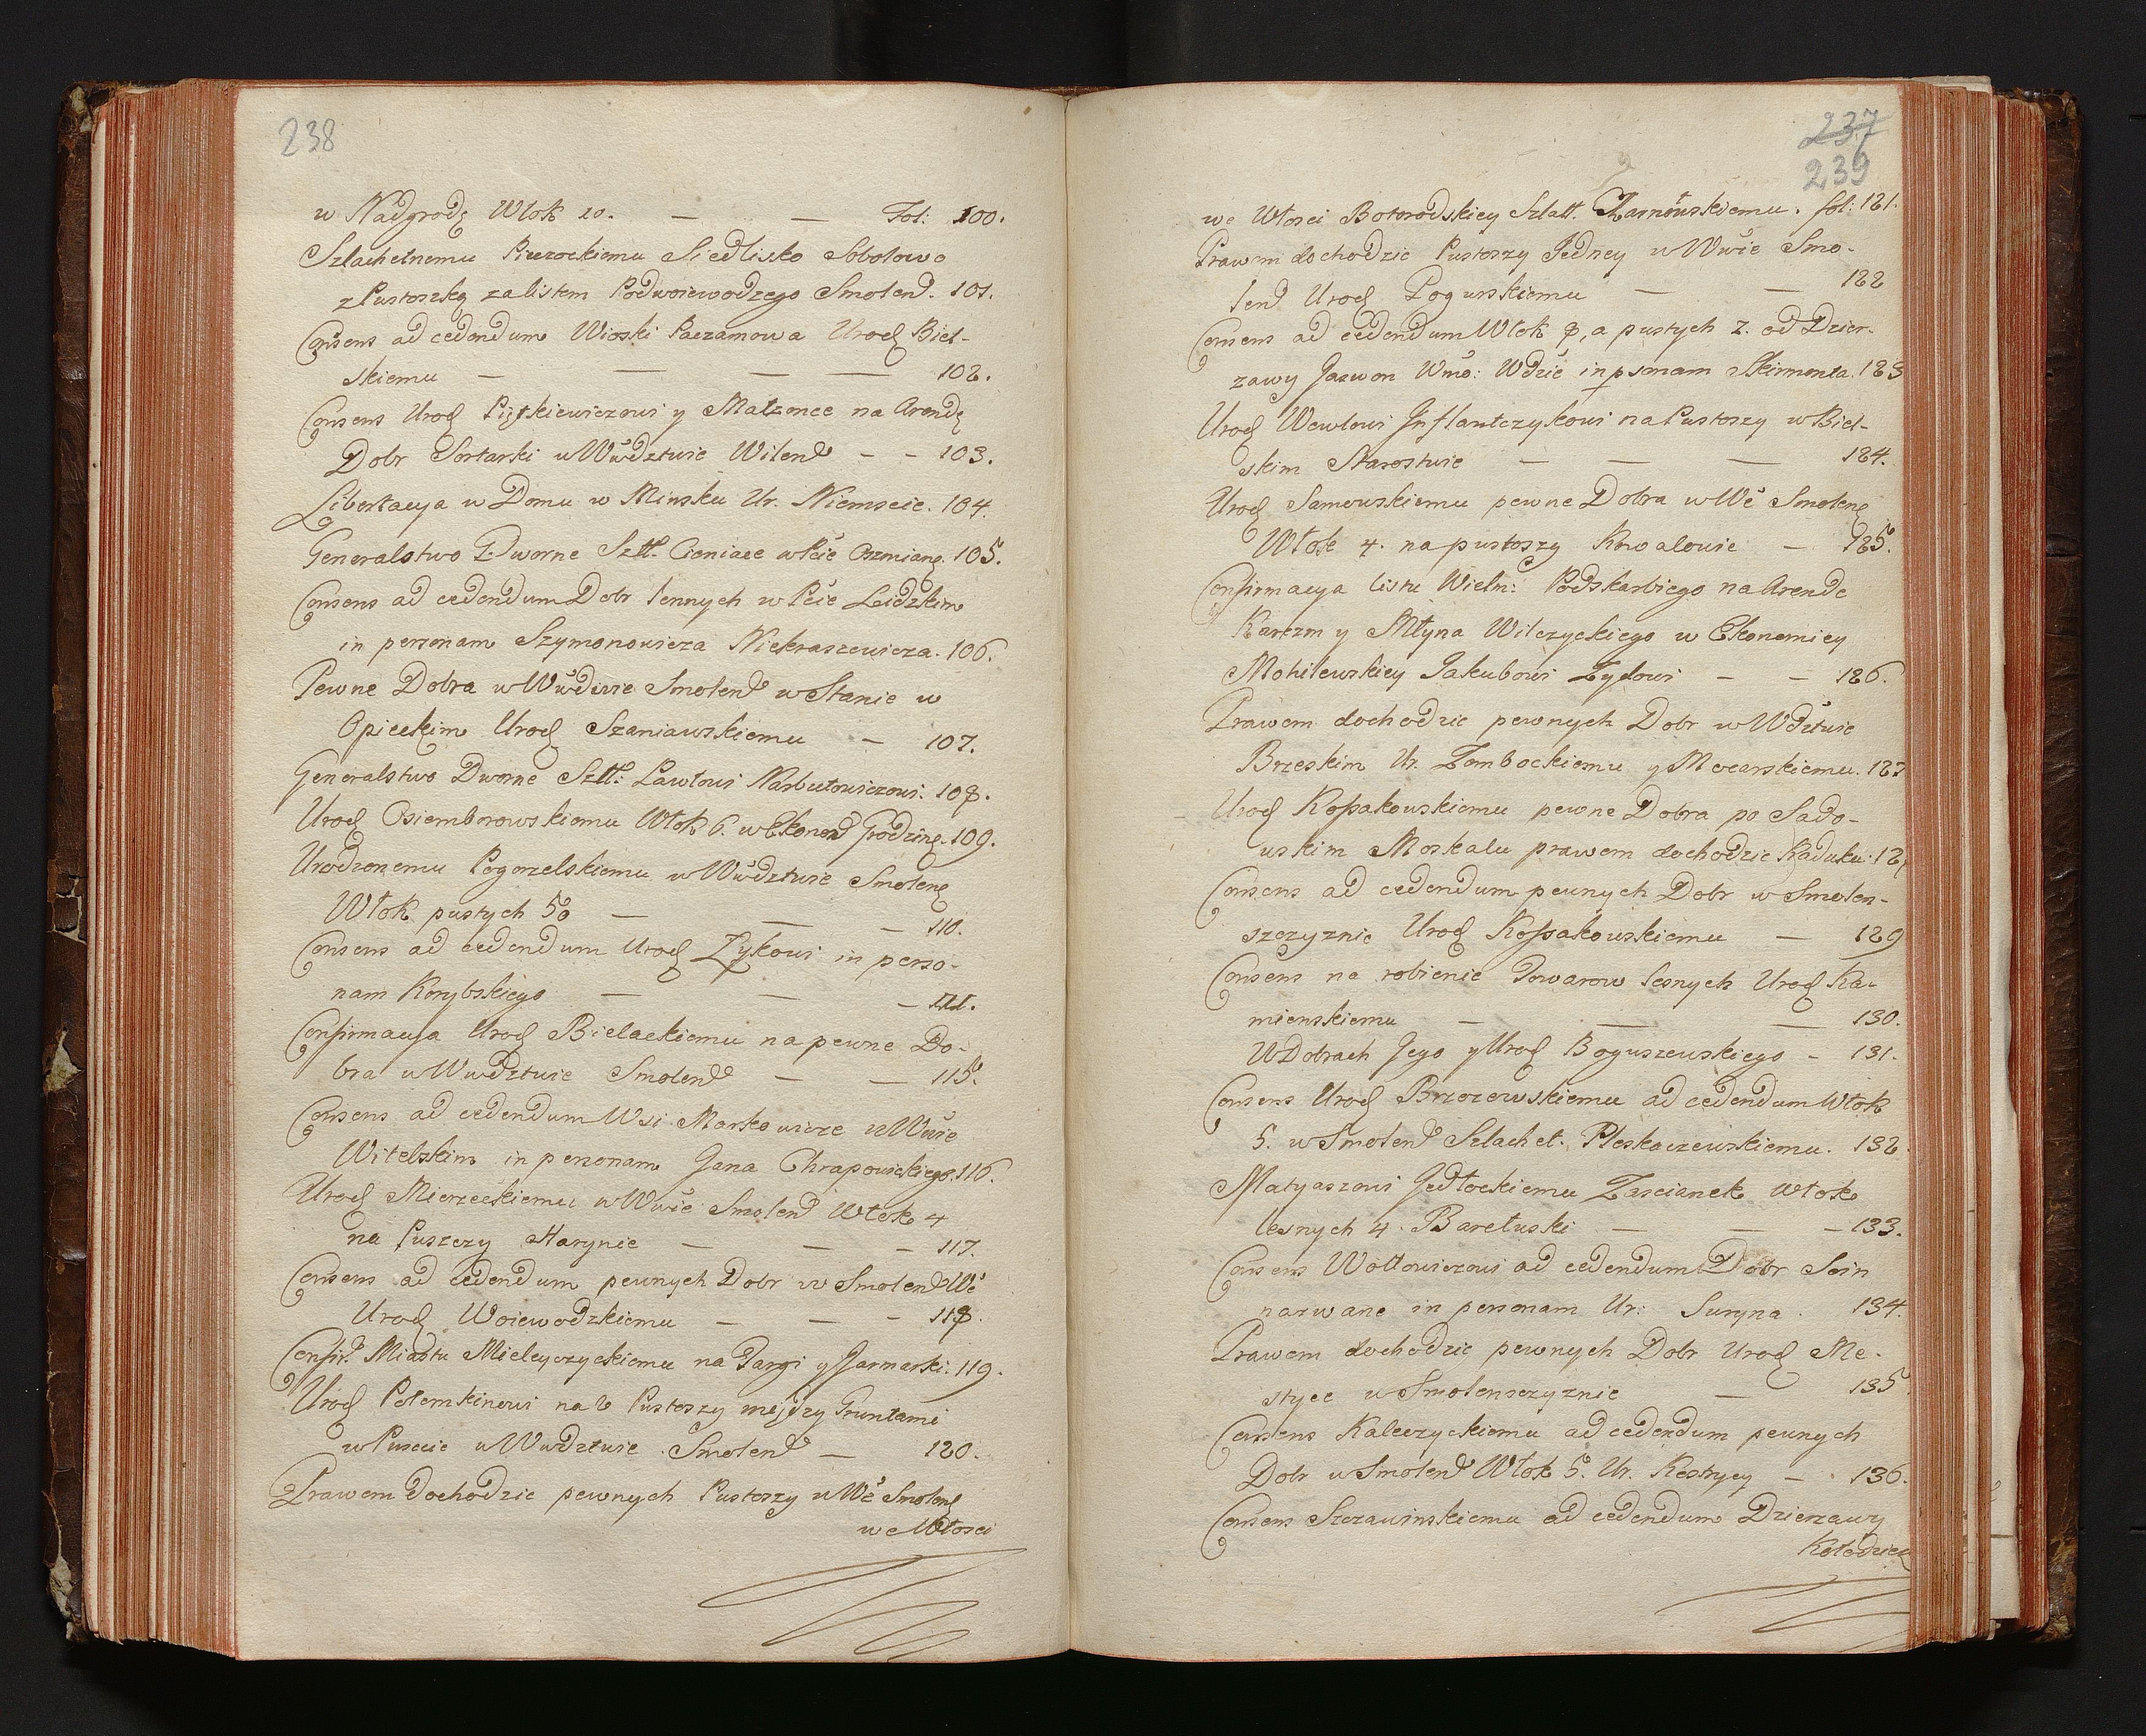 238
w Nadgrodę Włok 20. — — Fol: 100.
Szlachetnemu Siedlisko Sobolowo
z Pustoszką za listem Podwoiewodzego Smolen. 101.
Consens ad cedendum Wioski Paczamowa Urod Biel-
skiemu — — — — 102.
Consens Urod Piotkiewiczowi y Małzonce na Arendę
Dobr Sortarki w Wwdztwie Wilen — — 103.
Libertacya w Domu w Minsku Ur. Niemscie. 104.
Generalstwo Dworne Szll. Cieniace w Pcie Oszmiang. 105.
Consens ad cedendum Dobr lennych w Pcie Lidzkim
in personam Szymonowicza Niekraszewicza. 106.
Pewne Dobra w Wwdztwie Smolen w Stanie w
Opieckim Urod Szaniawskiemu — 107.
Generalstwo Dworne Szll: Pawłowi Narbutowiczowi. 108.
Urod Osiemborowskiemu Włok 6. w Ekonom Grodzing. 109.
Urodzonemu Pogorzelskiemu w Wwdztwie Smolen
Włok pustych 50 — — — 110.
Consens ad cedendum Urod Zykowi in perso-
nam Korybskiego — — — 111.
Confirmacya Urod Bielackiemu na pewne Do-
bra w Wwdztwie Smolen — — 115.
Consens ad cedendum Wsi Markowicze w Wwie
Witebskim in personam Jana Chrapowickiego. 116.
Urod Mierzeckiemu w Wwie Smolen Włok 4
na Puszczy Harynie — — — 117.
Consens ad cedendum pewnych Dobr w Smolen We
Urod Woiewodzkiemu — — — 118.
Confir. Miastu Mielczyckiemu na Targi y Jarmarki. 119.
Urod Potemkinowi na 2 Pustoszy między Gruntami
w Puscie w Wwdztwie Smolen — 120.
Prawem dochodzic pewnych Pustoszy w We Smolen
we Włosci
237
239
we Włosci Botorodskiey Szlatt. Zarnowskiemu. fol: 121.
Prawem dochodzic Pustoszy Jedney w Wwie Smo-
len Urod Pogurskiemu — — 122
Consens ad cedendum Włok 8, a pustych 2. od Dzier-
zawy Jaswon Wmo: Wdzie in psonam Skirmonta. 123
Urod Wewlowi Inflantczykowi na Pustoszy w Biel-
skim Starostwie — — — 124.
Urod Sanowskiemu pewne Dobra w We Smolen
Włok 4. na pustoszy Kowalowie — 125.
Confirmacya listu Wielm: Podskarbiego na Arende
Karczm y Młyna Wilczyckiego w Ekonomiey
Mohilewskiey Jakubowi Zydowi — — 126.
Prawem dochodzic pewnych Dobr w Wdztwie
Brzeskim Ur. Zembockiemu y Mocarskiemu. 127
Urod Kossakowskiemu pewne Dobra po Sado-
wskim Moskalu prawem dochodzic Kaduku. 12
Consens ad cedendum pewnych Dobr w Smolen-
szczyznie Urod Kossakowskiemu — 129
Consens na robienie Towarow lesnych Urod Ka-
mienskiemu — — — 130.
W Dobrach Jego y Urod Boguszewskiego — 131.
Consens Urod Brzozewskiemu ad cedendum Włok
5. w Smolen Szlachet. Pleskaczewskiemu. 132.
Matyaszowi Jedłockiemu Zascianek Włok
lesnych 4. Baretuski — — — 133.
Consens Wołłowiczowi ad cedendum Dobr Soin
nazwane in personam Ur: Suryna. 134.
Prawem dochodzic pewnych Dobr Urod Me-
styce w Smolenszczyznie — 135
Consens Kaleczyckiemu ad cedendum pewnych
Dobr w Smolen Włok 5. Ur. Kestryey — 136.
Consens Szczawinskiemu ad cedendum Dzierzawy